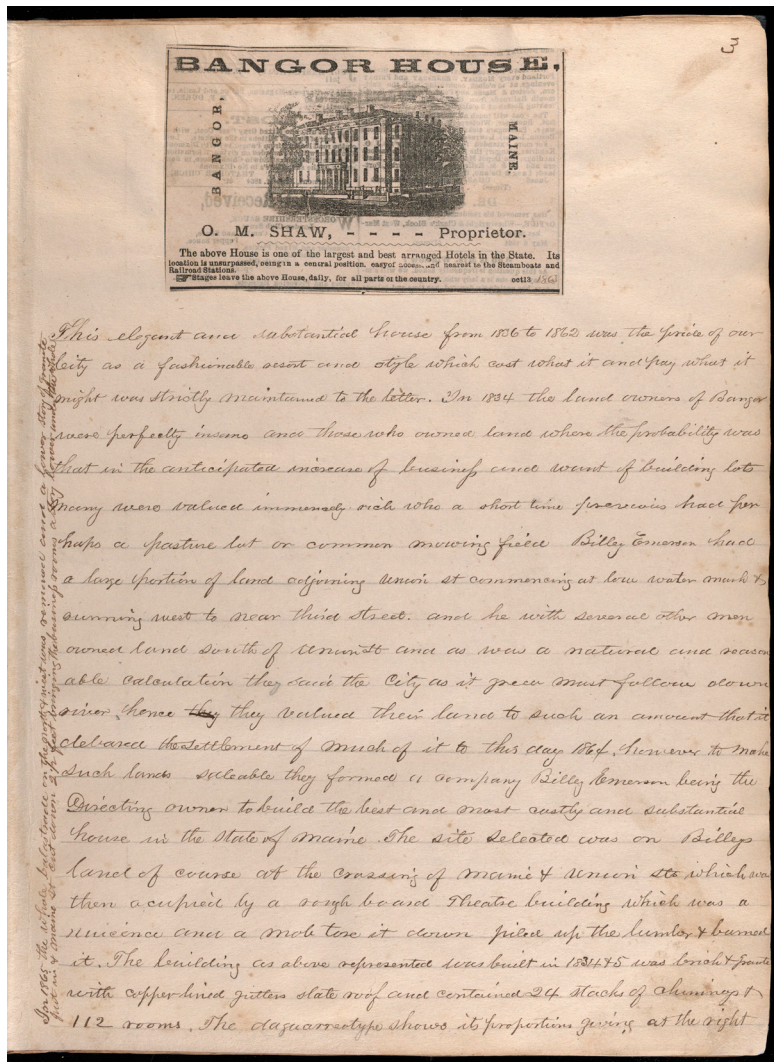 3
BANGOR HOUSE,
BANGOR,
MAINE.
O. M. SHAW, - - - - Proprietor.
The above House is one of the largest and best arranged Hotels in the State. Its
location is unsurpassed, being in a central position, easy of access, and nearest to the Steamboats and
Railroad Stations.
Stages leave the above House, daily, for all parts of the country. oct13
This elegant and substantial house from 1836 to 1862 was the pride of our
City as a fashionable resort and style which cost what it and pay what it
might was strictly maintained to the letter. In 1834 the land owners of Bangor
were perfectly insane and those who owned land where the probability was
that in the anticipated increase of business and want of building lots
many were valued immensely rich who a short time previous had per
haps a pasture lot or common mowing field Billey Emerson had
a large portion of land adjoining Union st commencing at low water mark &
running west to near third street. and he with several other men
owned land south of Union St and as was a natural and reason
able calculation they said the City as it grew must follow down
river, hence they they valued their land to such an amount that it
debared the settlement of much of it to this day 1864. however to make
such lands saleable they formed a company Billey Emerson being the
Directing owner to build the best and most costly and substantial
house in the state of Maine The site selected was on Billeys
land of course at the crossing of Maine & Union sts which was
then acupied by a rough board Theatre building which was a
nuicence and a mob tore it down piled up the lumber & burned
it. The building as above represented was built in 1834 & 5 was brick & granite
with copper lined gutters slate roof and contained 24 stacks of chimneys &
112 rooms. The daguarreotype shows its proportions giving at the right
In 1865 the whole balustrade on the north & west was removed and a lower story of granite
put in & Maine St cut down feet bringing the business rooms a story lower under the whole